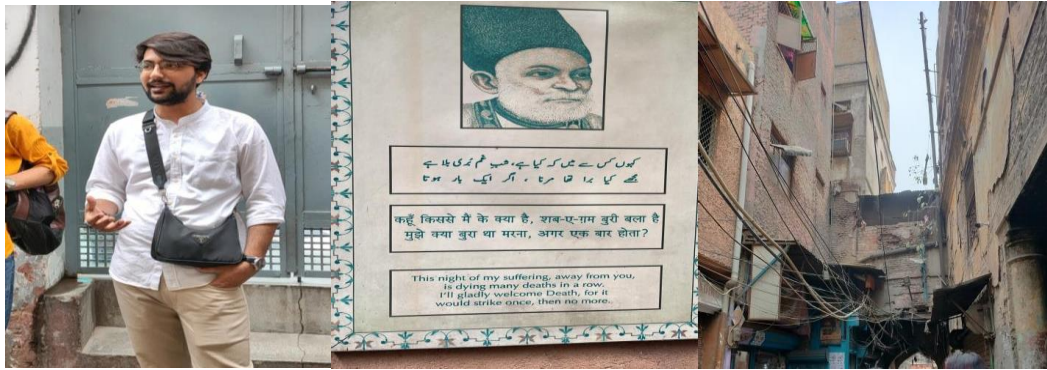 کہوں کس سے میں کہ کیا ہے، شب غم بُری بلا ہے
مجھے کیا برا تھا مرنا ، اگر ایک بار ہوتا
कहूँ किससे मैं के क्या है, शब-ए-ग़म बुरी बला है
मुझे क्या बुरा था मरना, अगर एक बार होता?
This night of my suffering, away from you,
is dying many deaths in a row.
I'll gladly welcome Death, for it
would strike once, then no more..